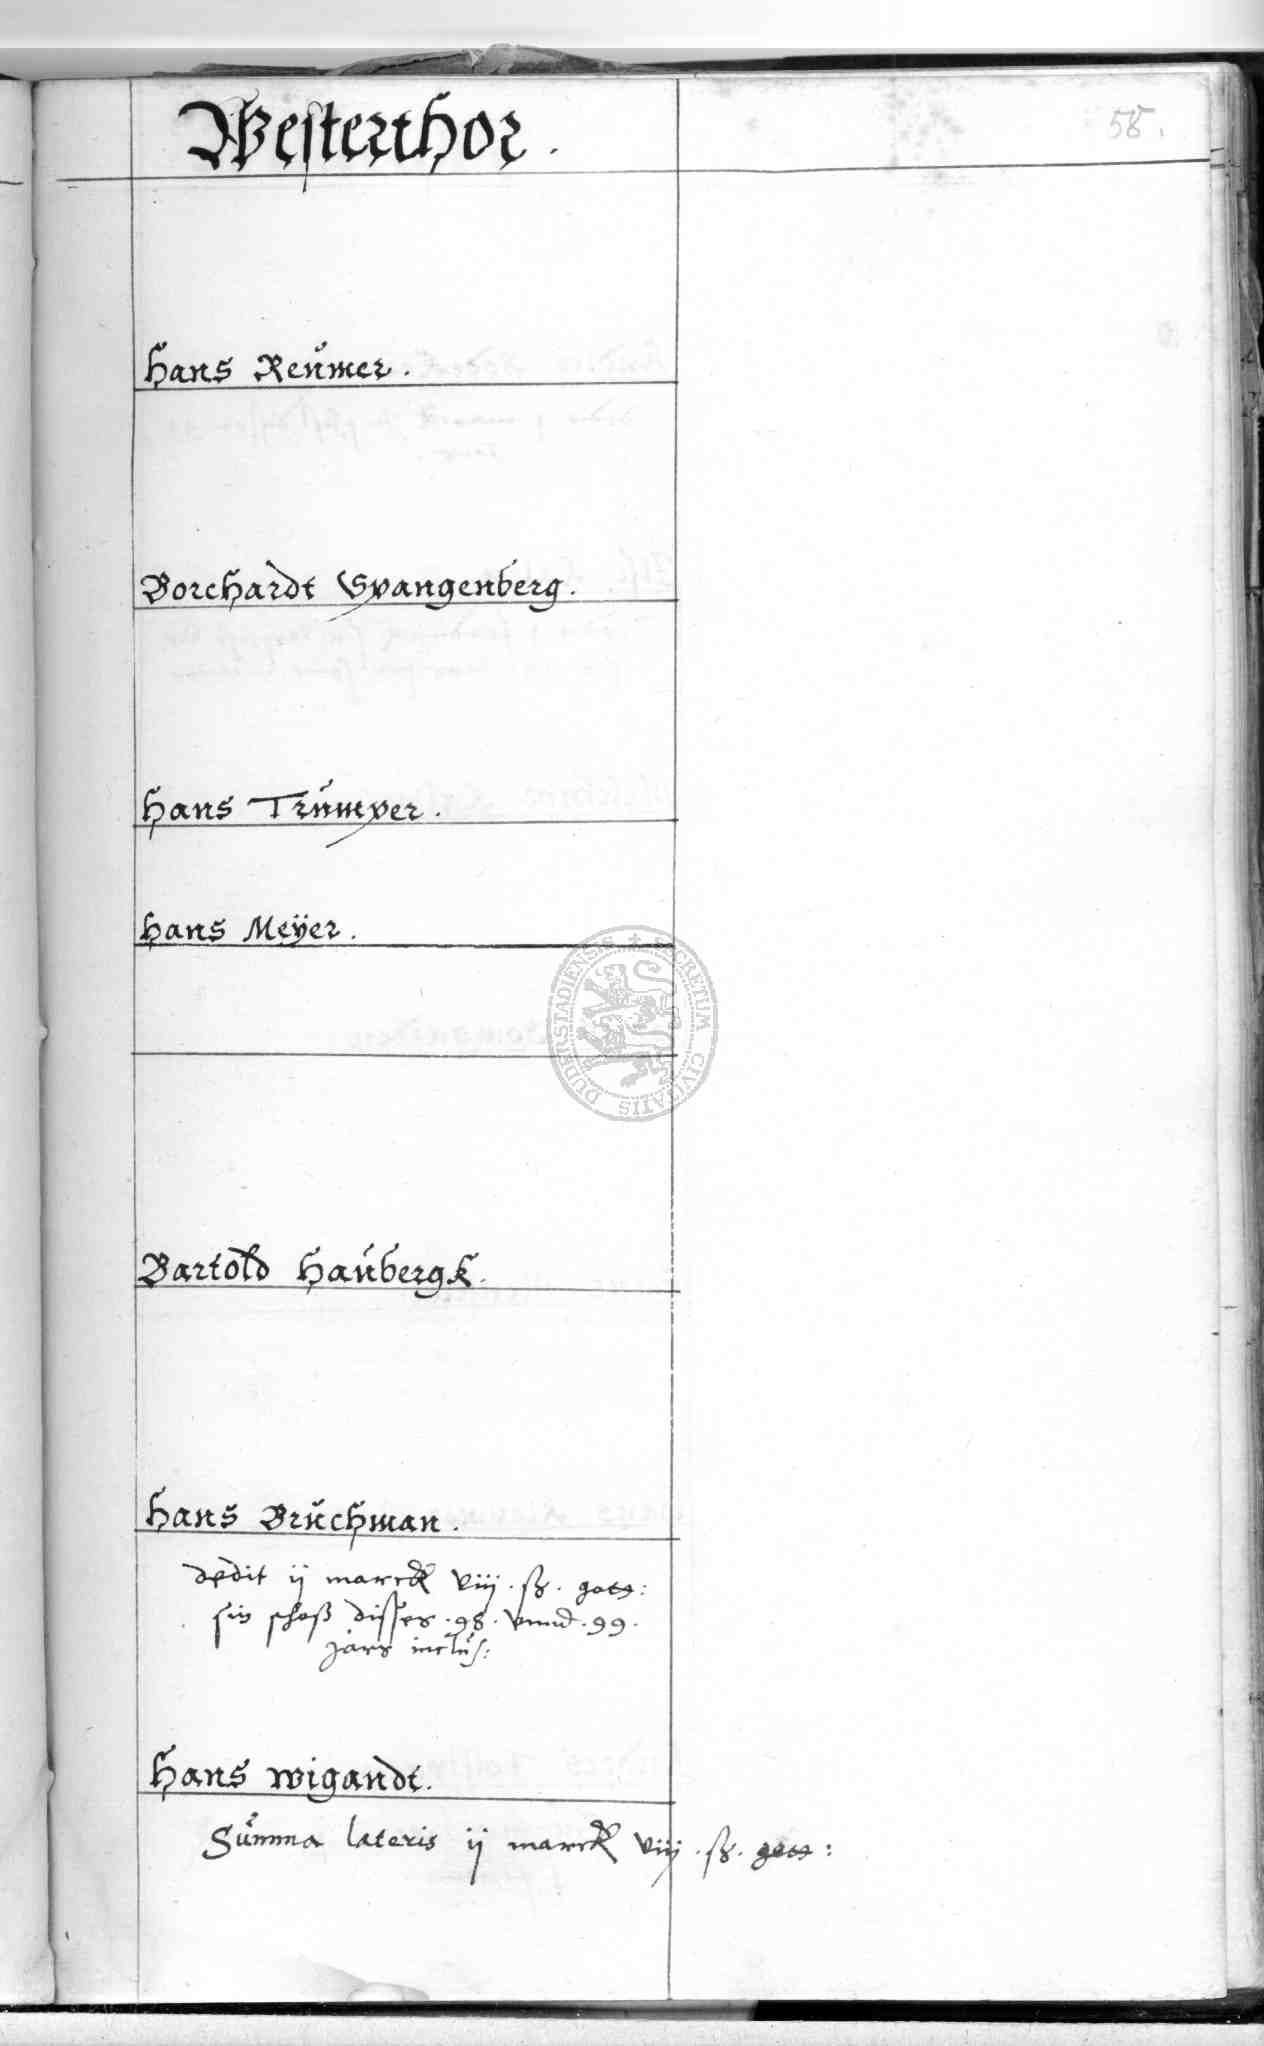 Westerthor.
58.
Hans Reümer.
Borchardt Spangenberg.
Hans Trümper.
Hans Meÿer.
SECRETUM CIVITATIS DUDERSTADIENSIS
Bartold Haübergk.
Hans Brüchman.
dedit ij marck viij. ß. gott:
sin schoß disses .98. vnnd .99.
jars inclüs:
Hans wigandt.
Sümma lateris ij marck viij. ß. gott: